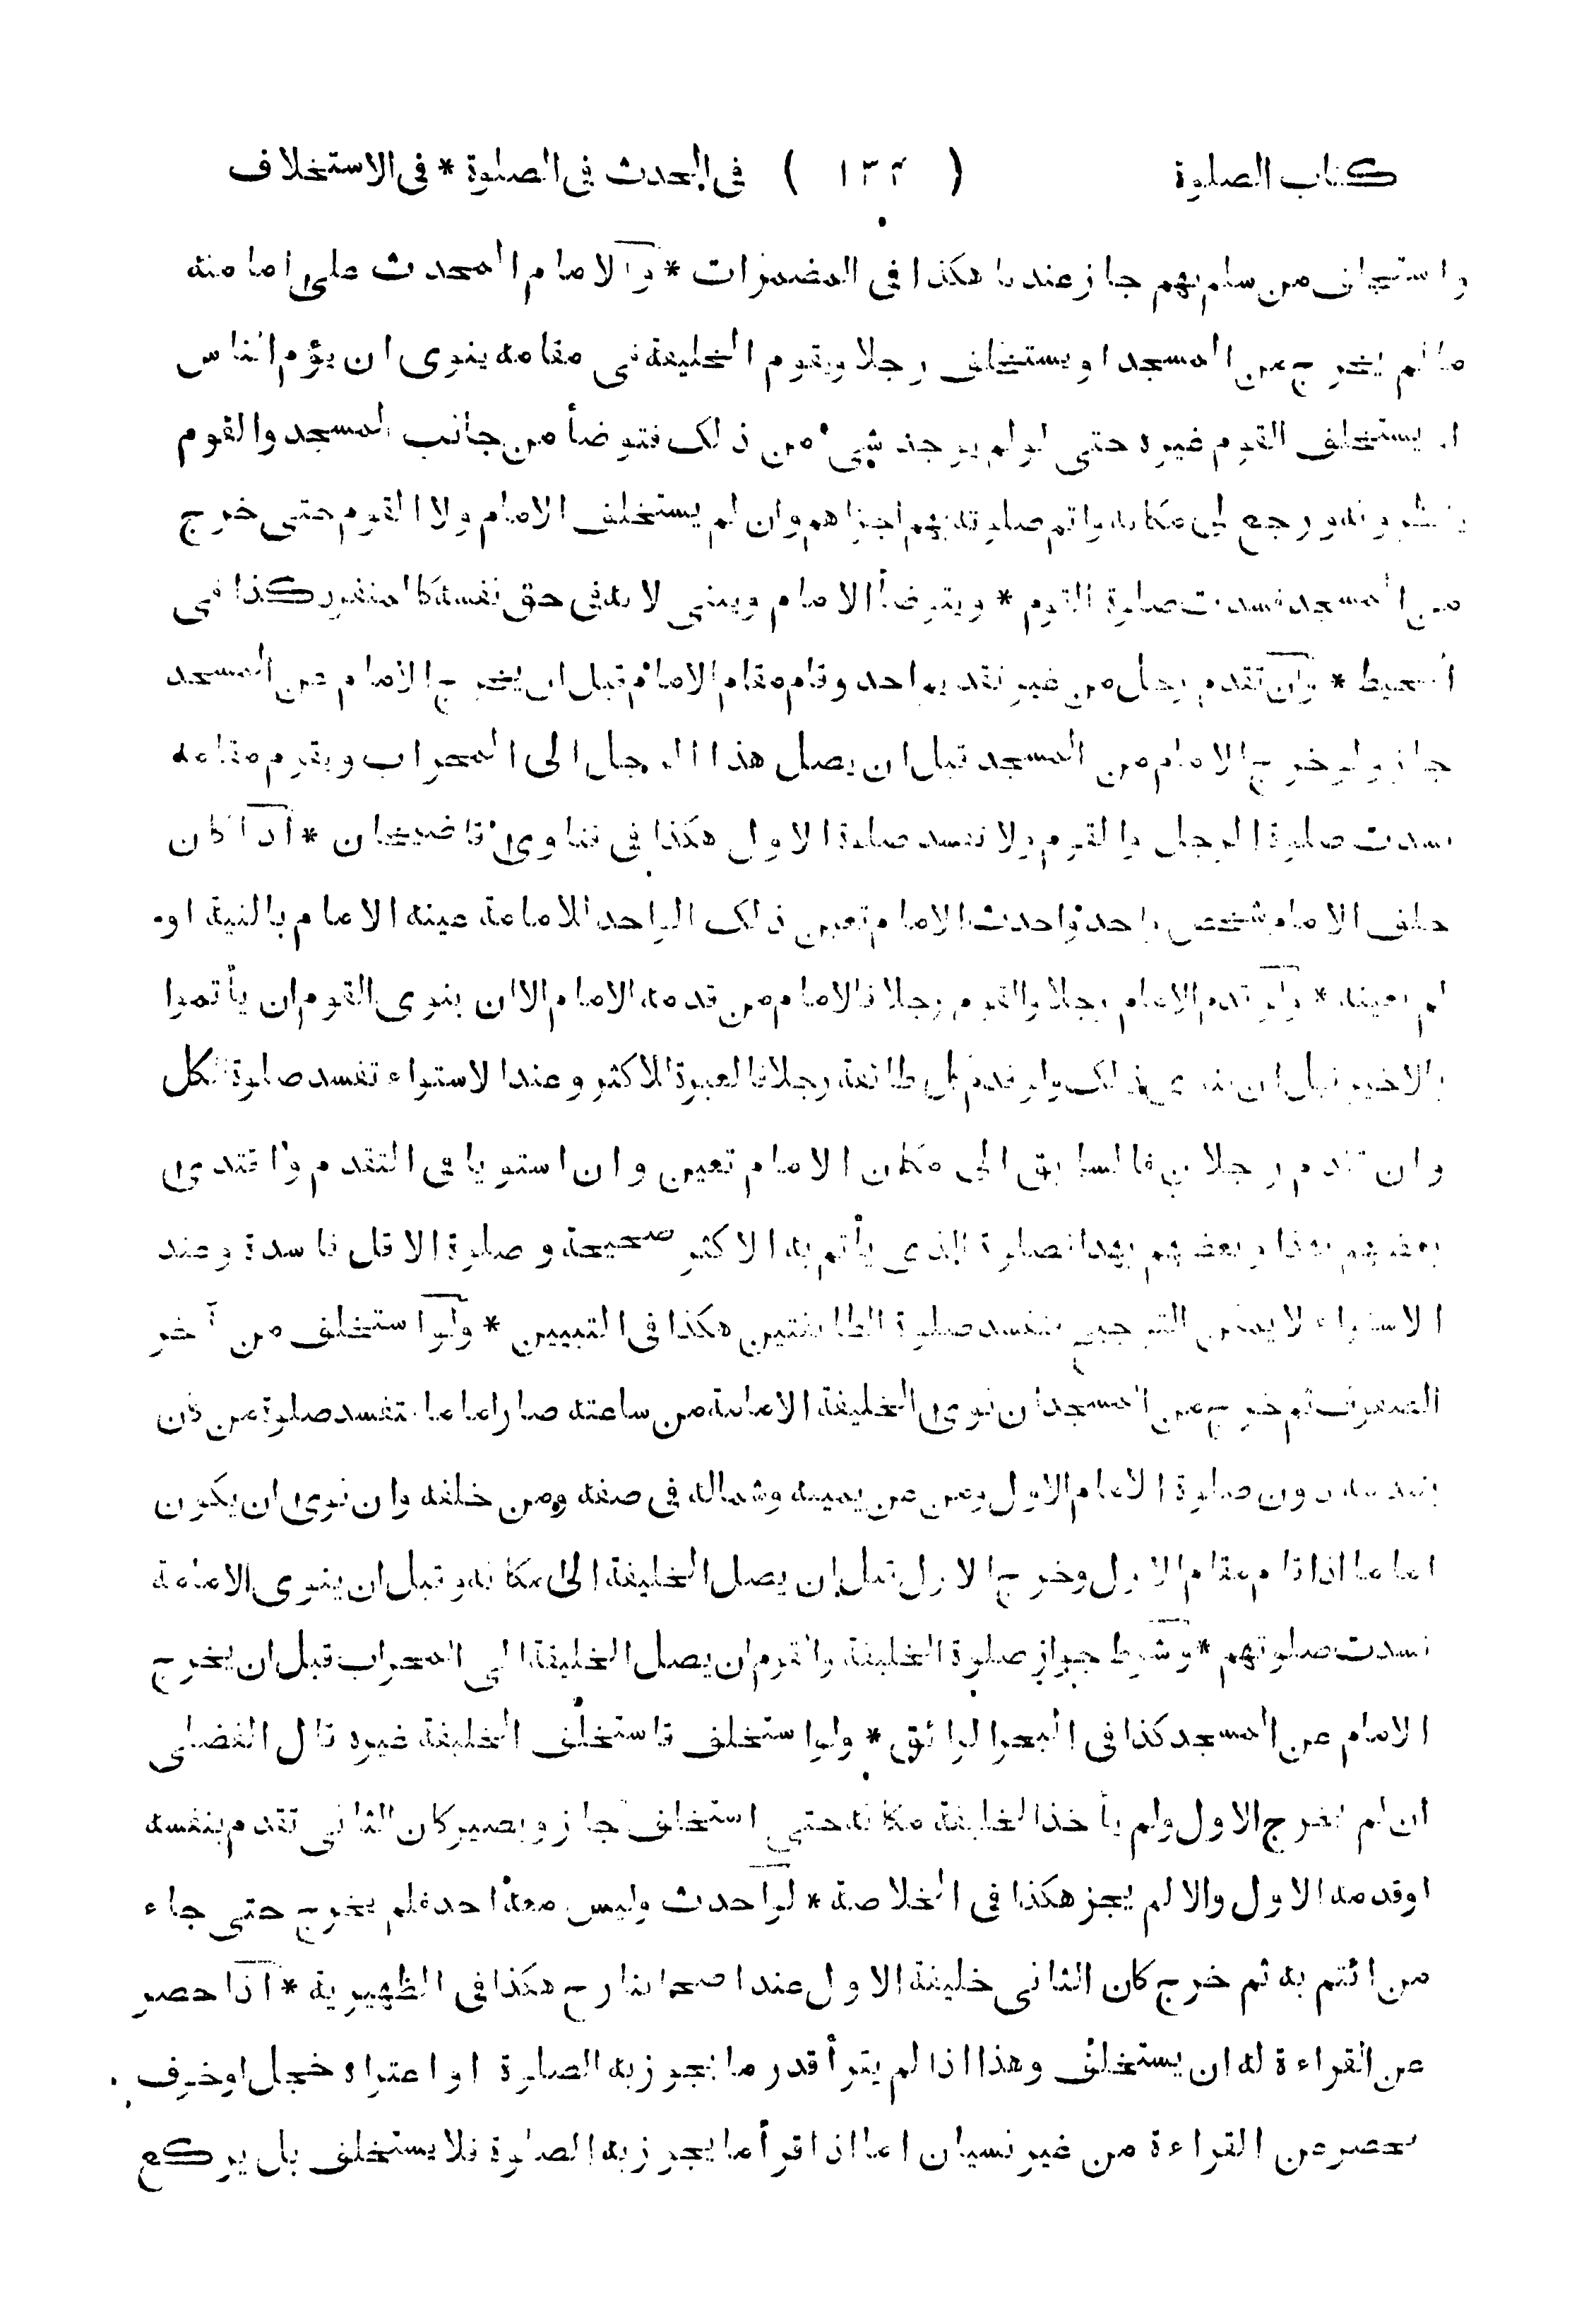 كتاب الصلوة ( ١٣٢ ) فى الحدث فى الصلوة * فى الاستخلاف
واستخلف من سلم بهم جاز عندنا هكذا فى المضمرات * والامام المحدث على امامته
ما لم يخرج عن المسجد او يستخلف رجلا ويقوم الخليفة فى مقامه ينوى ان يؤم الناس
او يستخلف القوم غيره حتى لو لم يوجد شىء من ذلك فتوضأ من جانب المسجد والقوم
ينتظرونه ورجع الى مكانه واتم صلوته بهم اجزاهم وان لم يستخلف الامام ولا القوم حتى خرج
من المسجد فسدت صلوة القوم * ويتوضأ الامام ويبنى لانه فى حق نفسه كالمنفرد كذا فى
المحيط * وان تقدم رجل من غير تقديم احد وقام مقام الامام قبل ان يخرج الامام عن المسجد
جاز ولو خرج الامام من المسجد قبل ان يصل هذا الرجل الى المحراب ويقوم مقامه
فسدت صلوة الرجل والقوم ولا تفسد صلوة الاول هكذا فى فتاوى قاضيخان * اذا كان
خلف الامام شخص واحد فاحدث الامام تعين ذلك الواحد للامامة عينه الامام بالنية او
لم يعينه * ولو قدم الامام رجلا والقوم رجلا فالامام من قدمه الامام الا ان ينوى القوم ان يأتموا
بالاخير قبل ان ينوى ذلك ولو قدم كل طائفة رجلا فالعبرة للاكثر وعند الاستواء تفسد صلوة الكل
وان تقدم رجلان فالسابق الى مكان الامام تعين وان استويا فى التقدم واقتدى
بعضهم بهذا وبعضهم بهذا فصلوة الذى يأتم به الاكثر صحيحة وصلوة الاقل فاسدة وعند
الاستواء لا يمكن الترجيح فتفسد صلوة الطائفتين هكذا فى التبيين * ولو استخلف من آخر
الصفوف ثم خرج من المسجد ان نوى الخليفة الامامة من ساعته صار اماما فتفسد صلوة من كان
يتقدمه دون صلوة الامام الاول ومن عن يمينه وشماله فى صفه ومن خلفه وان نوى ان يكون
اماما اذا قام مقام الاول وخرج الاول قبل ان يصل الخليفة الى مكانه وقبل ان ينوى الامامة
فسدت صلوتهم * وشرط جواز صلوة الخليفة والقوم ان يصل الخليفة الى المحراب قبل ان يخرج
الامام عن المسجد كذا فى البحر الرائق * ولو استخلف فاستخلف الخليفة غيره قال الفضلى
ان لم يخرج الاول ولم يأخذ الخليفة مكانه حتى استخلف جاز ويصير كان الثانى تقدم بنفسه
او قدمه الاول والا لم يجز هكذا فى الخلاصة * لو احدث وليس معه احد فلم يخرج حتى جاء
من ائتم به ثم خرج كان الثانى خليفة الاول عند اصحابنا رح هكذا فى الظهيرية * اذا حصر
عن القراءة له ان يستخلف وهذا اذا لم يقرأ قدر ما يجوز به الصلوة او اعتراه خجل او خوف
فحصر عن القراءة من غير نسيان اما اذا قرأ ما يجوز به الصلوة فلا يستخلف بل يركع